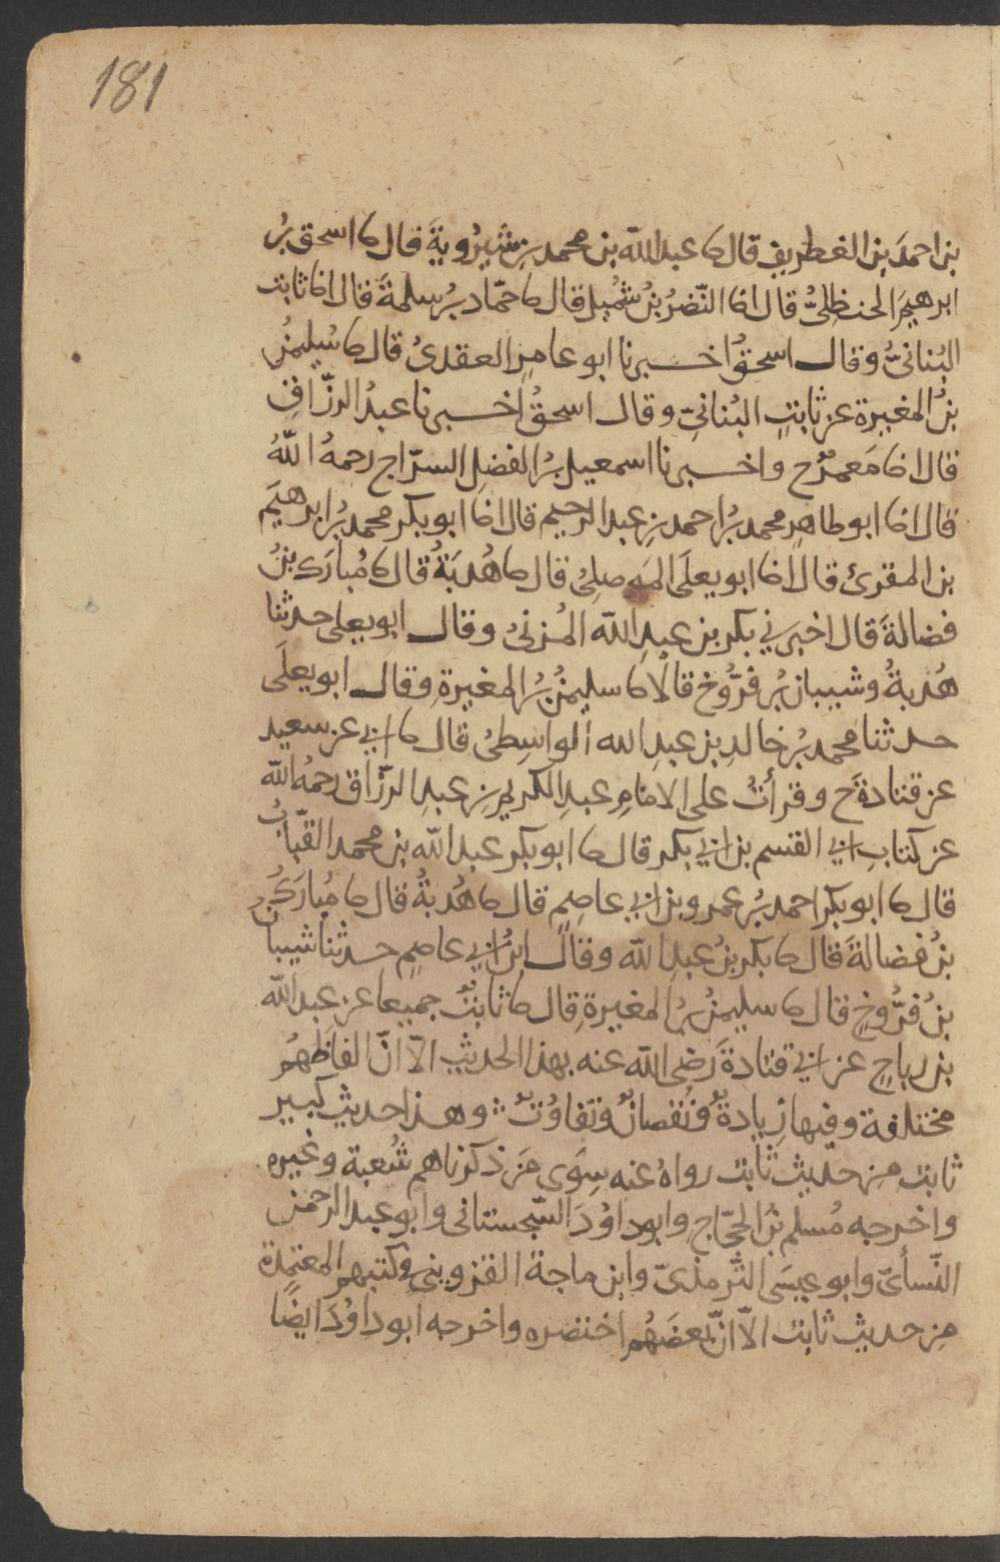 181
بن احمدَ بن الغطريف قال نا عبد الله بن محمد بن شيرُويةَ قال نا اسحق بنُ
ابرهيمَ الحنظلىُّ قال انا النّضرُ بنُ شُمَيل قال نا حمّاد بنُ سلمةَ قال انا ثابت
البُنانىُّ وقال اسحقُ اخبرنا ابو عامرٍ العقدىُّ قال نا سُليمنُ
بنُ المغيرة عن ثابتٍ البُنانىّ وقال اسحقُ اخبرنا عبدُ الرزّاق
قال انا مَعمرٌ ح واخبرنا اسمعيل بنُ الفضلِ السرّاج رحمهُ اللّهُ
قال انا ابو طاهرٍ محمد بنُ احمد بن عبد الرحيم قال انا ابو بكر محمد بنُ ابرهيمَ
بن المقرئ قال انا ابو يعلَى الموصلىُّ قال نا هُدبَةُ قال نا مُبارَك بنُ
فضالةَ قال اخبرني بكر بن عبدِ الله المُزنىُّ وقال ابو يعلى حدثنا
هُدبةُ وشيبان بنُ فرّوخ قالَا نا سليمنُ بنُ المغيرةِ وقال ابو يعلَى
حدثنا محمد بنُ خالدِ بن عبدِ الله الواسِطىُّ قال نا ابى عن سعيد
عن قتادةَ ح وقرأتُ على الامامِ عبدِ الكريم بن عبدِ الرزّاق رحمهُ اللّه
عن كتابِ ابى القسم بن ابى بكر قال نا ابو بكر عبد الله بن محمد القبّابُ
قال نا ابو بكر احمد بنُ عمرو بن ابى عاصِمٍ قال نا هُدبةُ قال نا مُبارَكُ
بنُ فضالةَ قال نا بكر بنُ عبدِ الله وقال ابنُ ابى عاصمٍ حدثنا شيبانُ
بنُ فرُّوخٍ قال نا سليمنُ بنُ المغيرةِ قال نا ثابتٌ جميعا عن عبد اللّه
بن رباحٍ عن ابى قتادةَ رضى الله عنه بهذا الحديثِ الّا انّ الفاظَهُم
مختلفة وفيها زيادةٌ ونقصانٌ وتفاوُتٌ وهذا حديث كبير
ثابت من حديث ثابت رواهُ عنه سِوَى مَن ذكرناهم شُعبة وغيره
واخرجه مُسلم بنُ الحجّاجِ وابو داوُدَ السّجستانى وابو عبد الرحمن
النَّسأىّ وابو عيسَى التّرمذىّ وابن ماجة القزوينى وكتبهم المعتمدة
من حديث ثابت الّا انّ بعضَهُم اختصره واخرجه ابو داوُدَ ايضًا